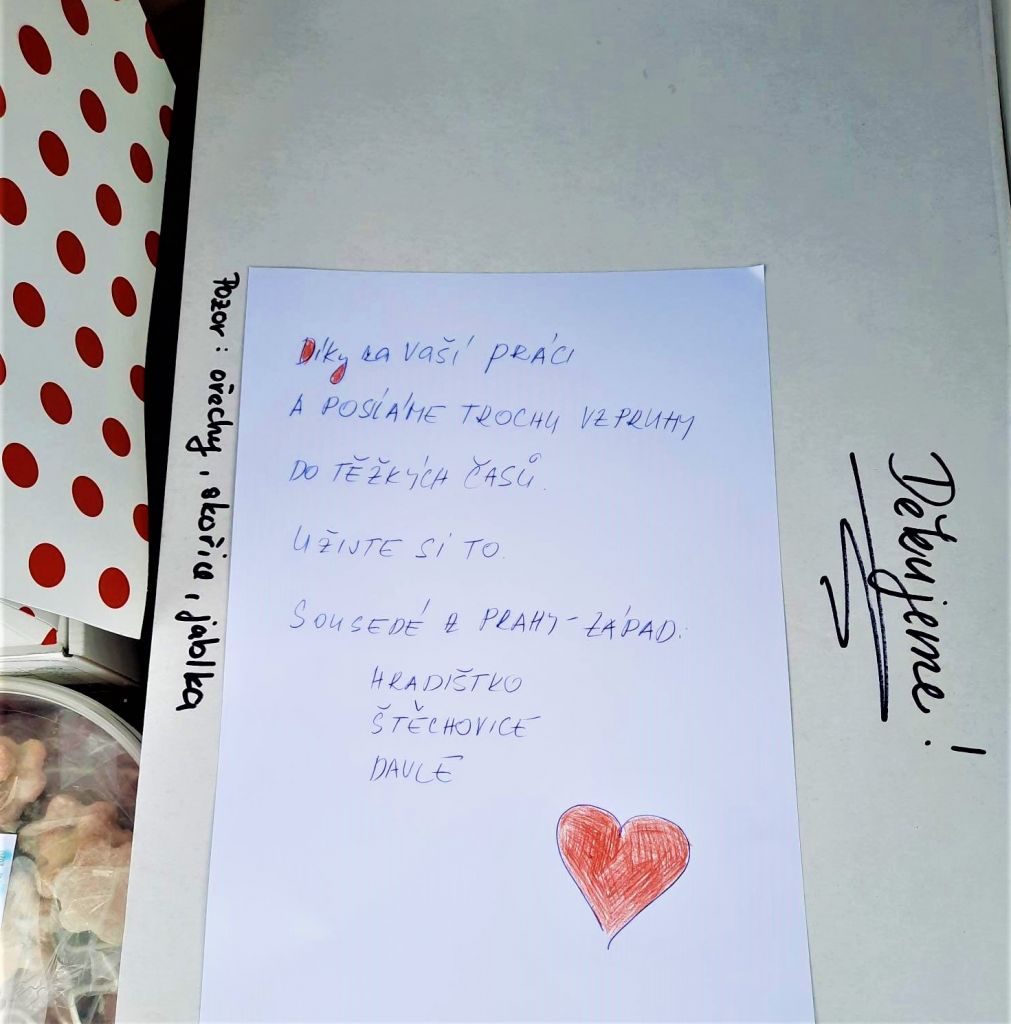 Díky za vaší práci
A POSÍLÁME TROCHU VZPRUHY
DO TĚŽKÝCH ČASŮ.
UŽIJTE SI TO.
SOUSEDÉ Z PRAHY-ZÁPAD:
HRADIŠTKO
ŠTĚCHOVICE
DAVLE
Pozor: ořechy, skořice, jablka
Děkujeme!